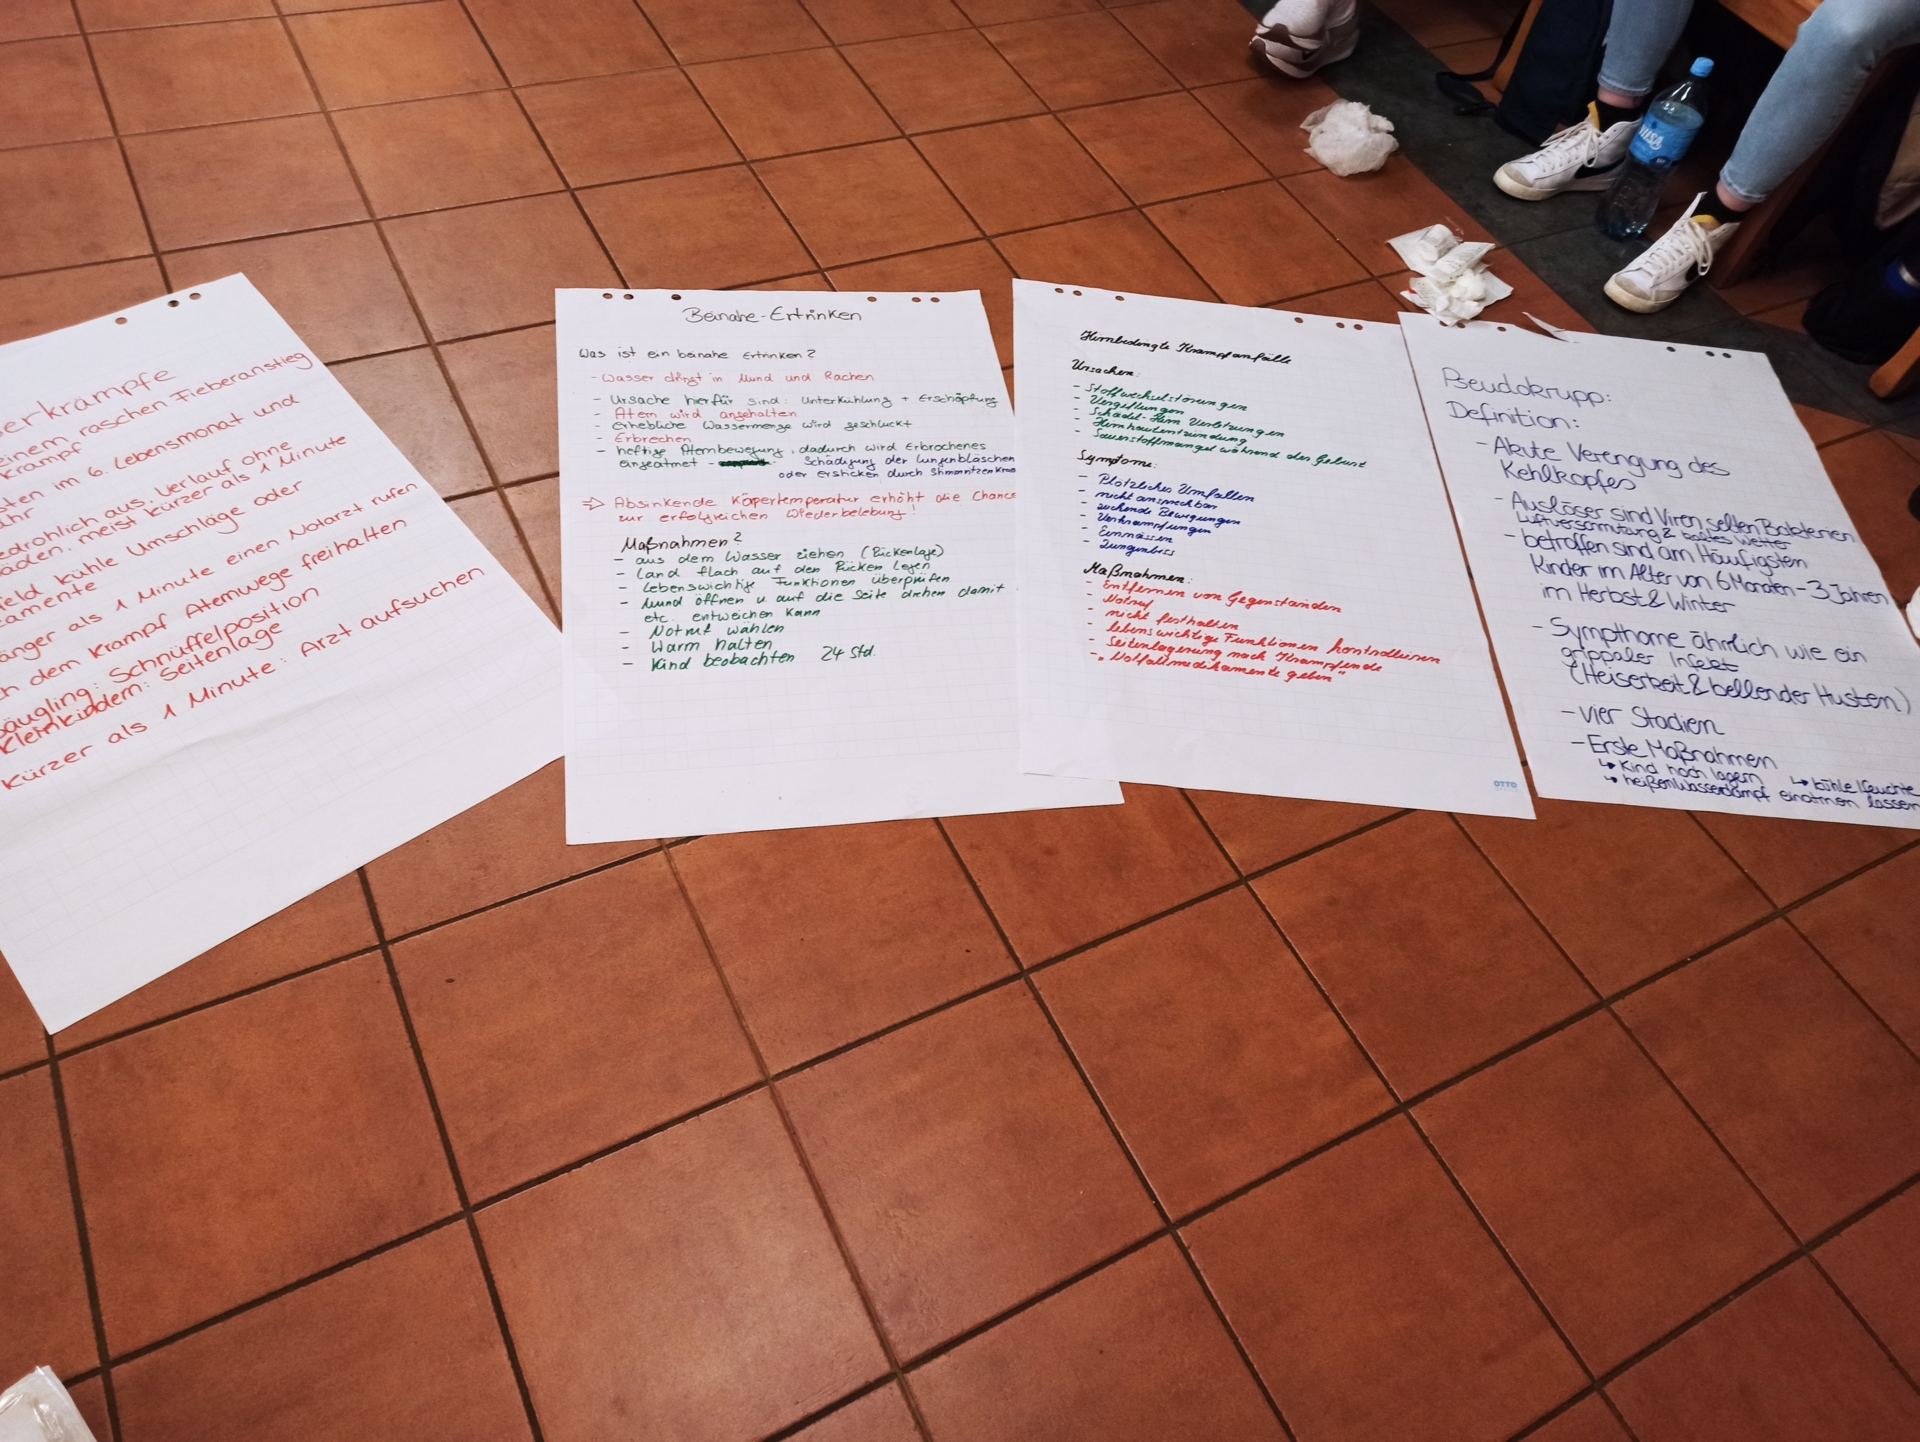 erkrämpfe
einem raschen Fieberanstieg
Krampf
sten im 6. Lebensmonat und
ahr
edrohlich aus. Verlauf ohne
äden. meist kürzer als 1 Minute
eld kühle Umschläge oder
camente
änger als 1 Minute einen Notarzt rufen
ch dem Krampf Atemwege freihalten
äugling: Schnüffelposition
Kleinkindern: Seitenlage
Kürzer als 1 Minute: Arzt aufsuchen
Beinahe-Ertrinken
Was ist ein beinahe Ertrinken?
- Wasser dringt in Mund und Rachen
- Ursache hierfür sind: Unterkühlung + Erschöpfung
- Atem wird angehalten
- erhebliche Wassermenge wird geschluckt
- Erbrechen
- heftige Atembewegung, dadurch wird Erbrochenes
eingeatmet - Schädigung der Lungenbläschen
oder Ersticken durch
⇒ Absinkende Körpertemperatur erhöht die Chance
zur erfolgreichen Wiederbelebung!
Maßnahmen?
- aus dem Wasser ziehen (Rückenlage)
- Land flach auf den Rücken legen
- Lebenswichtige Funktionen überprüfen
- Mund öffnen u. auf die Seite drehen damit
etc. entweichen kann
- Notruf wählen
- Warm halten
- Kind beobachten 24 Std.
Hirnbedingte Krampfanfälle
Ursachen:
- Stoffwechselstörungen
- Vergiftungen
- Schädel-Hirn Verletzungen
- Hirnhautentzündung
- Sauerstoffmangel während der Geburt
Symptome:
- Plötzliches Umfallen
- nicht ansprechbar
- zuckende Bewegungen
- Verkrampfungen
- Einnässen
- Zungenbiss
Maßnahmen:
- Entfernen von Gegenständen
- Notruf
- nicht festhalten
- lebenswichtige Funktionen kontrollieren
- Seitenlagerung nach Krampfende
- "Notfallmedikamente geben"
OTTO
Pseudokrupp:
Definition:
- Akute Verengung des
Kehlkopfes
- Auslöser sind Viren selten Bakterien
Luftverschmutzung & kaltes Wetter
- betroffen sind am Häufigsten
Kinder im Alter von 6 Monaten - 3 Jahren
im Herbst & Winter
- Sympthome ähnlich wie ein
grippaler Infekt
(Heiserkeit & bellender Husten)
- vier Stadien
- Erste Maßnahmen
↳ Kind hoch lagern ↳ kühle feuchte
↳ heißen Wasserdampf einatmen lassen